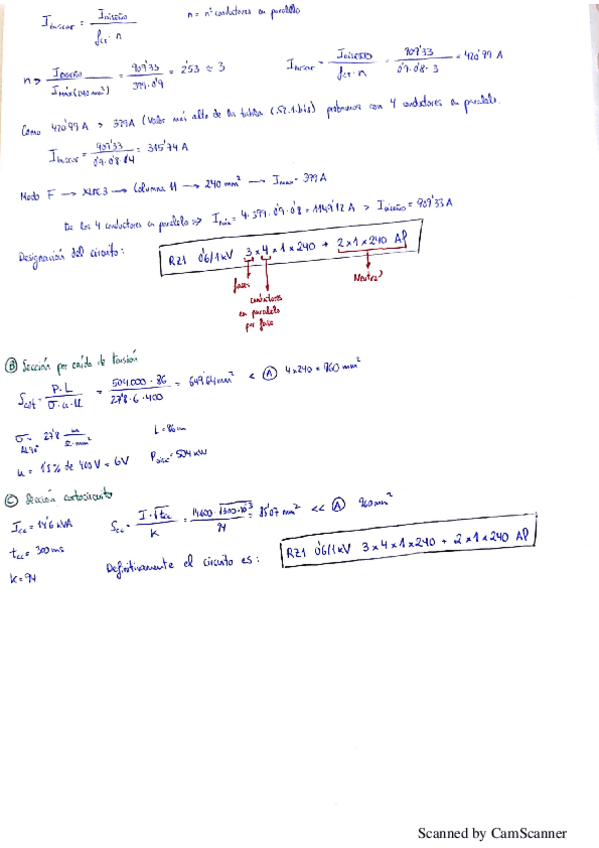 I buscar = I diseño / fct · n    n = nº conductores en paralelo
n => I diseño / I máx (240 mm²) = 909'33 / 399·0'9 = 2'53 ≈ 3    I buscar = I diseño / fct · n = 909'33 / 0'9·0'8·3 = 420'99 A
Como 420'99 A > 399A (Valor más alto de las tablas (.52.1.bis) probamos con 4 conductores en paralelo.
I buscar = 909'33 / 0'9·0'8·4 = 315'74 A
Modo F → XLPE3 → Columna 11 → 240 mm² → I max = 399 A
De los 4 conductores en paralelo => I máx = 4·399·0'9·0'8 = 1149'12 A > I diseño = 909'33 A
Designación del circuito: RZ1 0'6/1kV 3 x 4 x 1 x 240 + 2 x 1 x 240 Al
fases
Neutro
conductores
en paralelo
por fase
Ⓑ Sección por caída de tensión
S cdt = P·L / σ·u·U = 504.000·86 / 27'8·6·400 = 649'64 mm² < Ⓐ 4x240 = 960 mm²
σ Al 90º = 27'8 m / Ω·mm²    L = 86 m
u = 1'5% de 400 V = 6V    P = 504 kW
Ⓒ Sección cortocircuito
Icc = 14'6 kVA    Scc = I·√tcc / K = 14600·√300·10⁻³ / 94 = 85'07 mm² << Ⓐ 960 mm²
tcc = 300 ms
K = 94    Definitivamente el circuito es: RZ1 0'6/1kV 3 x 4 x 1 x 240 + 2 x 1 x 240 Al
Scanned by CamScanner